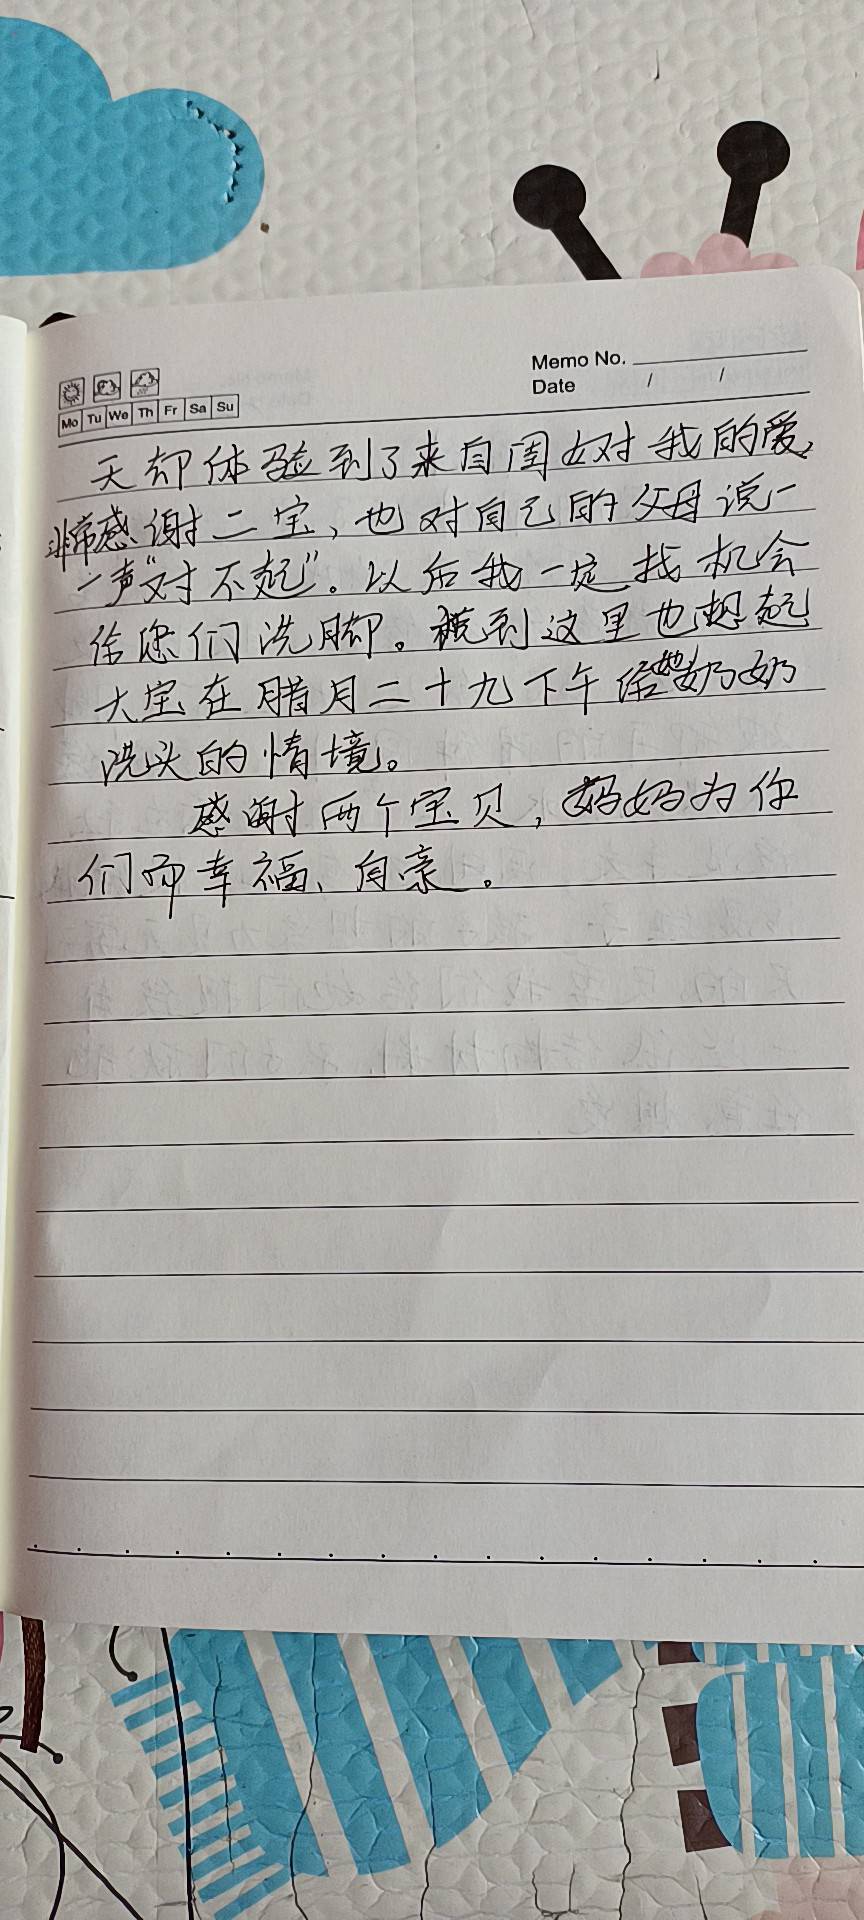 Memo No.
Date / /
Mo Tu We Th Fr Sa Su
天却体验到了来自闺女对我的爱,
非常感谢二宝、也对自己的父母说一
一声“对不起”。以后我一定找机会
给您们洗脚。说到这里也想起
大宝在腊月二十九下午给她奶奶
洗头的情境。
感谢两个宝贝,妈妈为你
们而幸福、自豪。